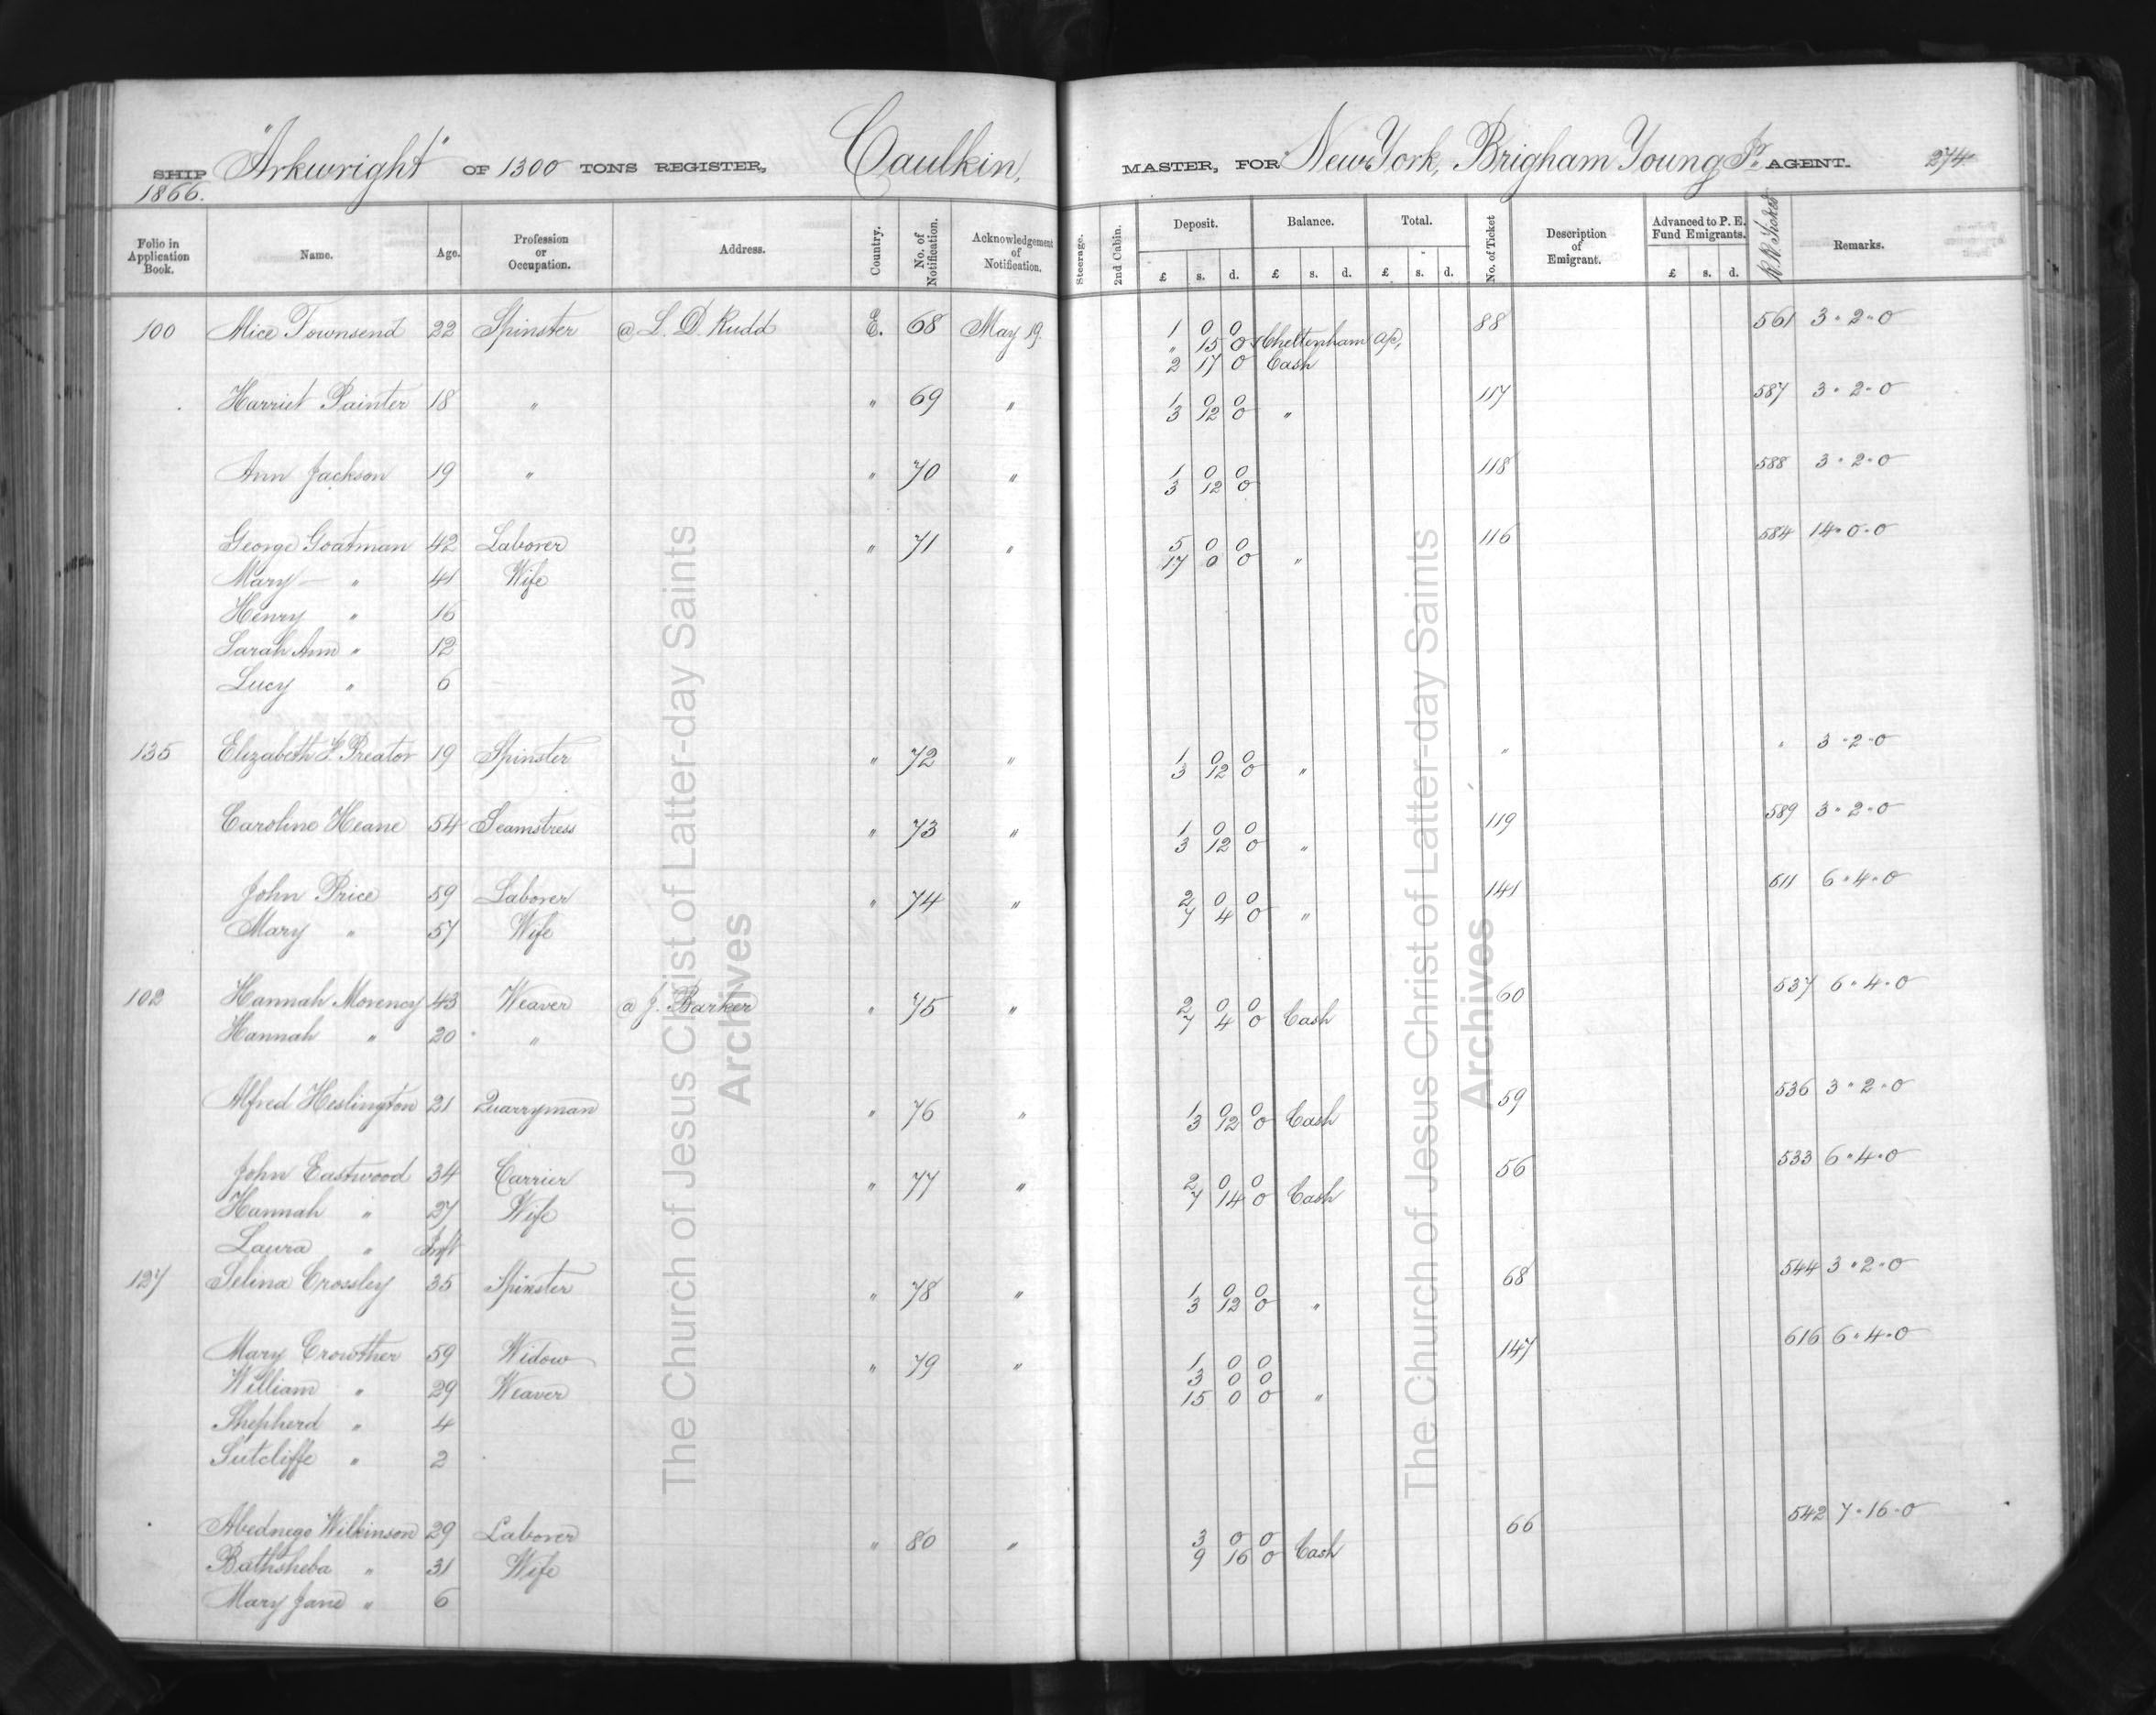 SHIP "Arkwright" OF 1300 TONS REGISTER, Caulkin, MASTER, FOR New York, Brigham Young Jr. AGENT. 274
1866.
Folio in Application Book. Name. Age. Profession or Occupation. Address. Country. No. of Notification. Acknowledgement of Notification. Steerage. 2nd Cabin. Deposit. £ s. d. Balance. £ s. d. Total. £ s. d. No. of Ticket Description of Emigrant. Advanced to P. E. Fund Emigrants. £ s. d. R.R. Ticket Remarks.
100 Alice Townsend 22 Spinster @ L. D. Rudd E. 68 May 19. 1 0 0 88 561 3-2-0
" 15 0 Cheltenham ap,
2 17 0 Cash
Harriet Painter 18 " " 69 " 1 0 0 117 587 3-2-0
3 12 0 "
Ann Jackson 19 " " 70 " 1 0 0 118 588 3-2-0
3 12 0
George Goatman 42 Laborer " 71 " 5 0 0 116 584 14-0-0
17 0 0 "
Mary " 41 Wife
Henry " 16
Sarah Ann " 12
Lucy " 6
135 Elizabeth F. Preator 19 Spinster " 72 " 1 0 0 " " 3-2-0
3 12 0 "
Caroline Heane 54 Seamstress " 73 " 1 0 0 119 589 3-2-0
3 12 0 "
John Price 59 Laborer " 74 " 2 0 0 141 611 6-4-0
7 4 0 "
Mary " 57 Wife
102 Hannah Morency 43 Weaver @ J. Barker " 75 " 2 0 0 60 537 6-4-0
7 4 0 Cash
Hannah " 20 "
Alfred Heslington 21 Quarryman " 76 " 1 0 0 59 536 3-2-0
3 12 0 Cash
John Eastwood 34 Carrier " 77 " 2 0 0 56 533 6-4-0
7 14 0 Cash
Hannah " 27 Wife
Laura " Inft
127 Selina Crossley 35 Spinster " 78 " 1 0 0 68 544 3-2-0
3 12 0 "
Mary Crowther 59 Widow " 79 " 1 0 0 147 616 6-4-0
3 0 0
William " 29 Weaver 15 0 0 "
Shepherd " 4
Sutcliffe " 2
Abednego Wilkinson 29 Laborer " 80 " 3 0 0 66 542 7-16-0
9 16 0 Cash
Bathsheba " 31 Wife
Mary Jane " 6
The Church of Jesus Christ of Latter-day Saints
Archives
The Church of Jesus Christ of Latter-day Saints
Archives